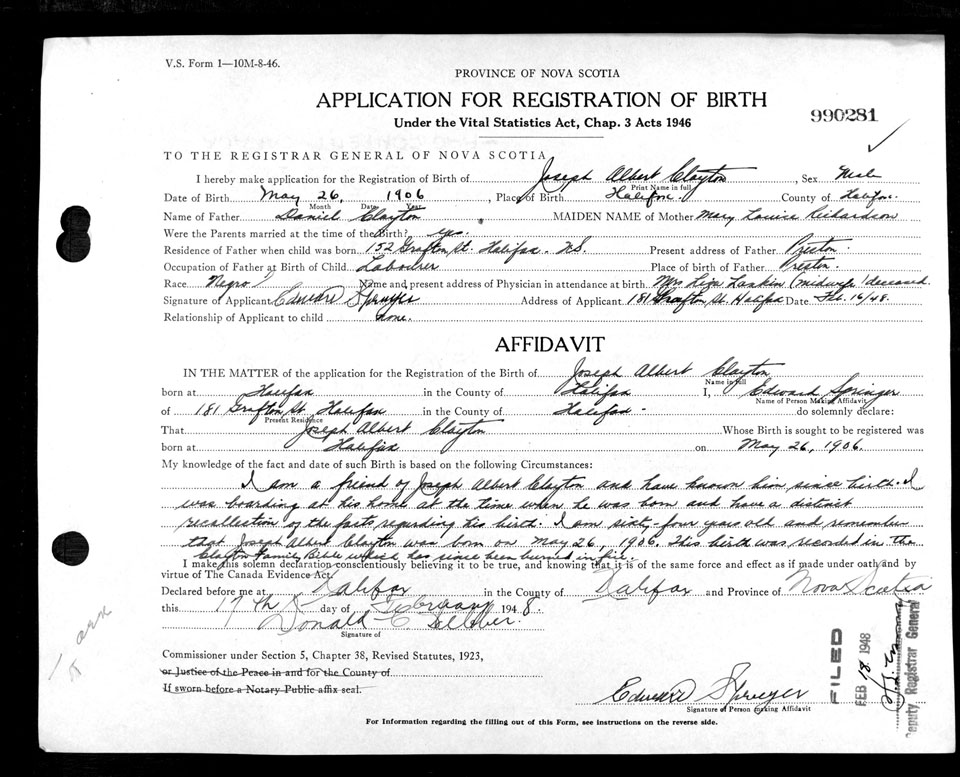 V.S. Form 1—10M-8-46.
PROVINCE OF NOVA SCOTIA
APPLICATION FOR REGISTRATION OF BIRTH
990281
Under the Vital Statistics Act, Chap. 3 Acts 1946
TO THE REGISTRAR GENERAL OF NOVA SCOTIA
I hereby make application for the Registration of Birth of Joseph Albert Clayton, Sex Male
Print Name in full
Date of Birth May 26, 1906, Place of Birth Halifax. County of Halifax.
Month Date Year
Name of Father Daniel Clayton MAIDEN NAME of Mother Mary Louise Richardson
Were the Parents married at the time of the Birth? yes.
Residence of Father when child was born 152 Grafton St. Halifax. N.S. Present address of Father Preston.
Occupation of Father at Birth of Child Labourer Place of birth of Father Preston.
Race Negro Name and present address of Physician in attendance at birth Mrs Liza Lankin (midwife) deceased
Signature of Applicant Edward Springer Address of Applicant 181 Grafton St. Halifax Date Feb. 16/48.
Relationship of Applicant to child none.
AFFIDAVIT
IN THE MATTER of the application for the Registration of the Birth of Joseph Albert Clayton
Name in full
born at Halifax in the County of Halifax I, Edward Springer
Name of Person Making Affidavit
of 181 Grafton St. Halifax in the County of Halifax - do solemnly declare:
Present Residence
That Joseph Albert Clayton Whose Birth is sought to be registered was
born at Halifax on May 26, 1906.
My knowledge of the fact and date of such Birth is based on the following Circumstances:
I am a friend of Joseph Albert Clayton and have known him since birth. I
was boarding at his home at the time when he was born and have a distinct
recollection of the facts regarding his birth. I am sixty four years old and remember
that Joseph Albert Clayton was born on May 26, 1906. This birth was recorded in the
Clayton Family Bible which has since been burned in fire.
I make this solemn declaration conscientiously believing it to be true, and knowing that it is of the same force and effect as if made under oath and by
virtue of The Canada Evidence Act.
Declared before me at Halifax in the County of Halifax and Province of Nova Scotia
this 17th day of February 1948.
Donald C.
Signature of
Commissioner under Section 5, Chapter 38, Revised Statutes, 1923,
or Justice of the Peace in and for the County of
If sworn before a Notary Public affix seal.
Edward Springer
Signature of Person making Affidavit
For Information regarding the filling out of this Form, see instructions on the reverse side.
FILED
FEB 18 1948
Deputy Registrar General